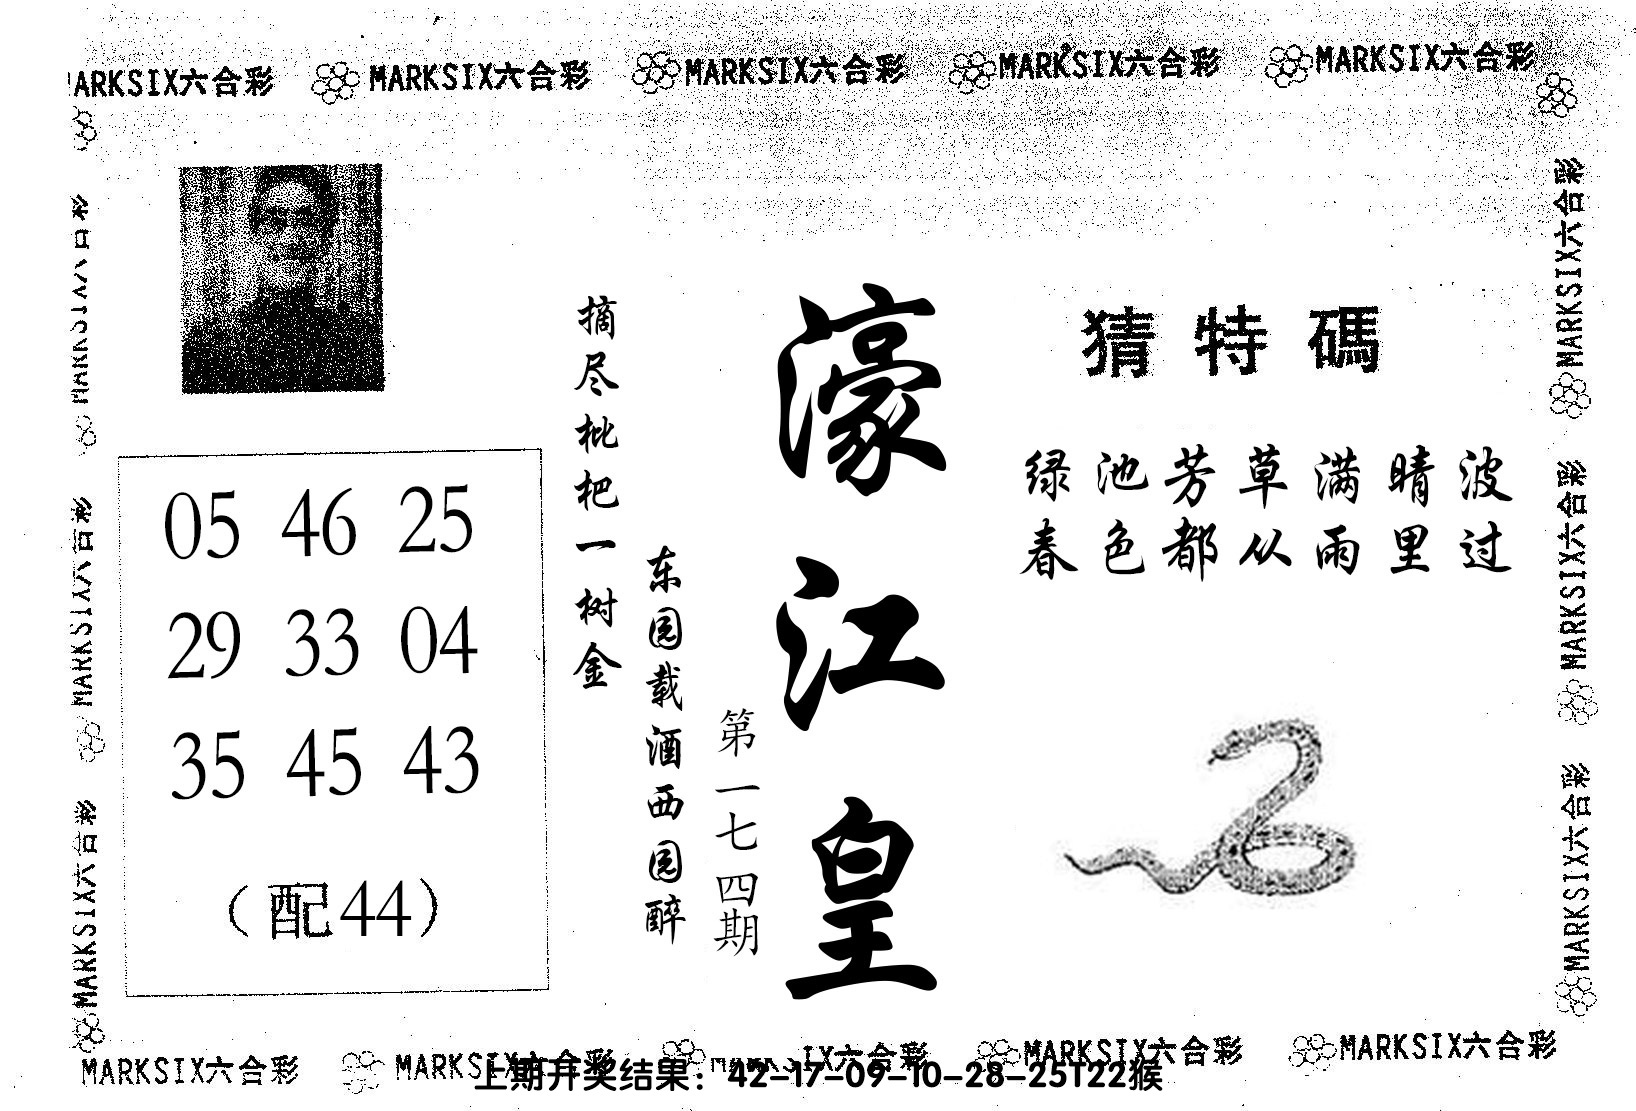 MARKSIX六合彩 MARKSIX六合彩 MARKSIX六合彩 MARKSIX六合彩 MARKSIX六合彩
猜特碼
绿池芳草满晴波
春色都从雨里过
濠江皇
第一七四期
东园载酒西园醉
摘尽枇杷一树金
05 46 25
29 33 04
35 45 43
（配44）
MARKSIX六合彩
MARKSIX六合彩
MARKSIX六合彩
MARKSIX六合彩
MARKSIX六合彩
MARKSIX六合彩
MARKSIX六合彩 MARKSIX六合彩 MARKSIX六合彩 MARKSIX六合彩 MARKSIX六合彩
上期开奖结果：42-17-09-10-28-25T22猴